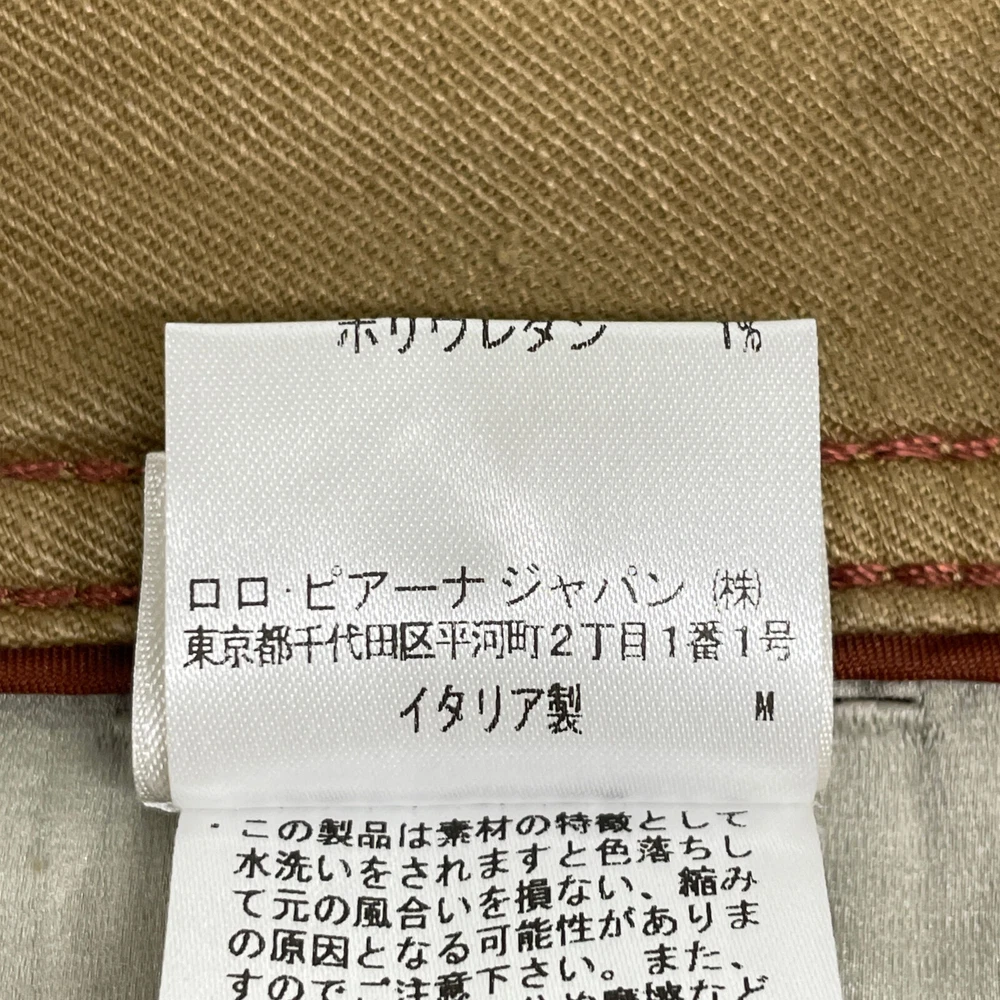 ポリウレタン 1%
ロロ・ピアーナ ジャパン ㈱
東京都千代田区平河町2丁目1番1号
イタリア製 M
・この製品は素材の特徴として
水洗いをされますと色落ちし
て元の風合いを損ない、縮み
の原因となる可能性がありま
すのでご注意下さい。また、